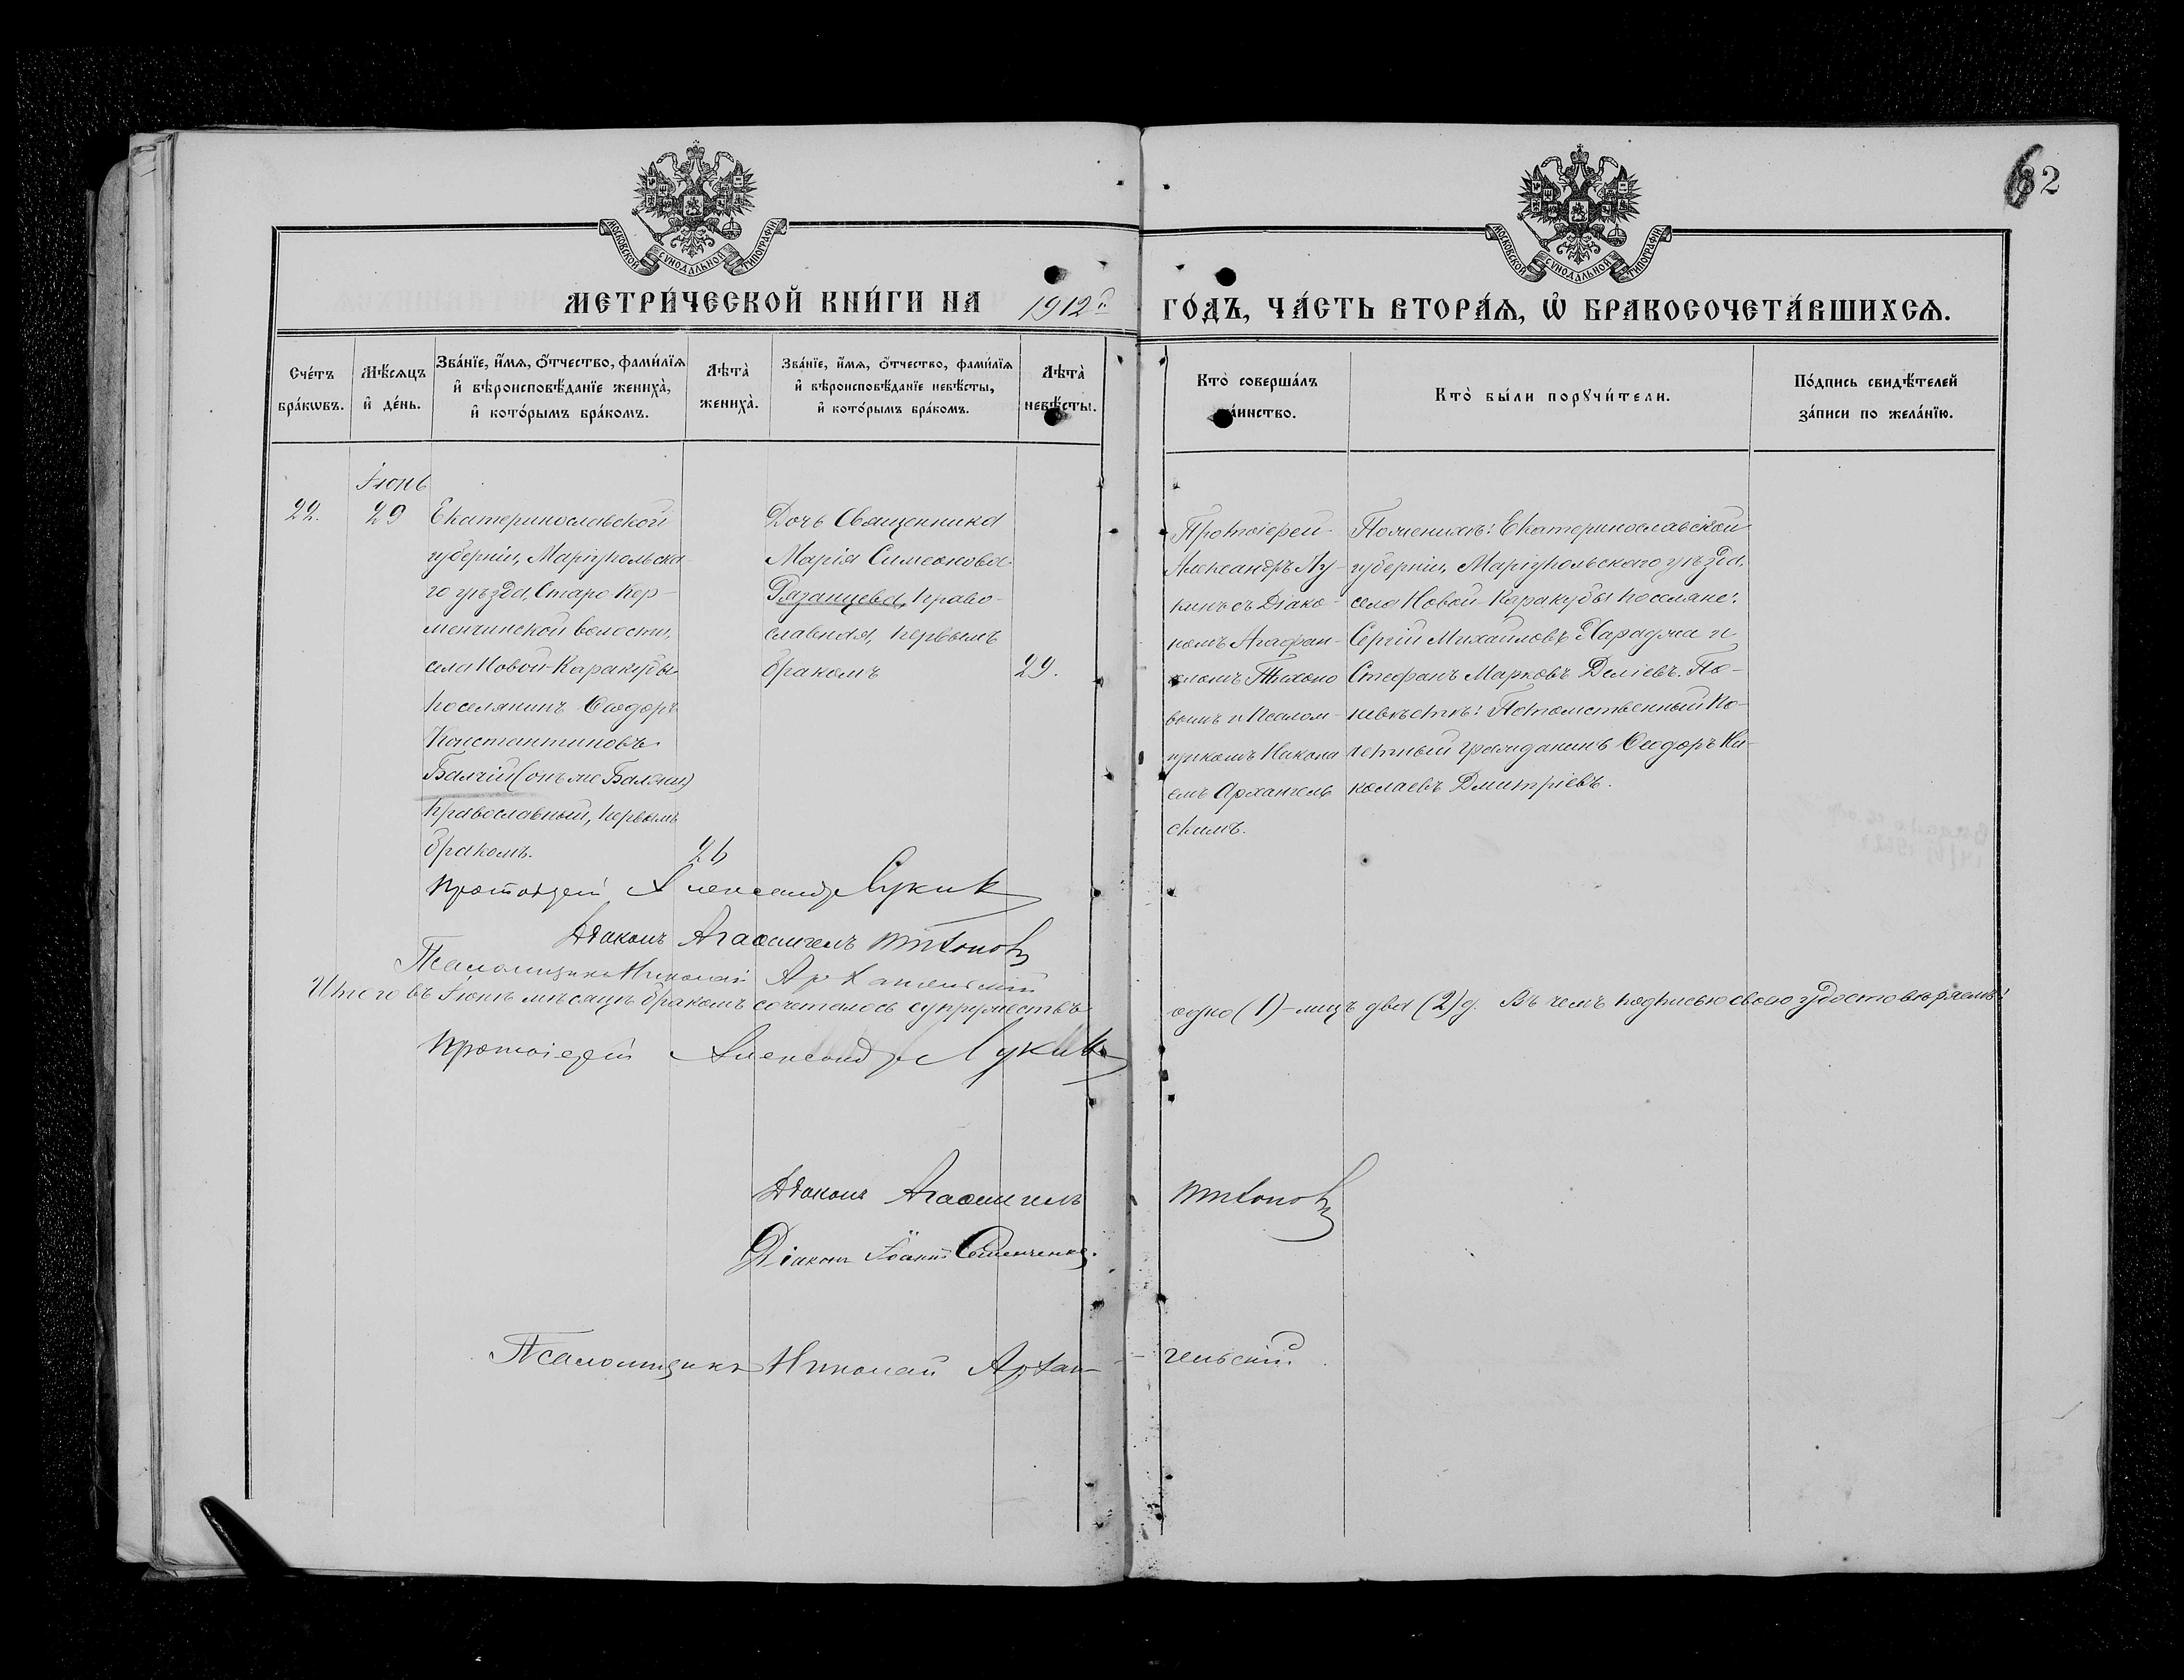 62
МОСКОВСКОЙ СѴНОДАЛЬНОЙ ТИПОГРАФІИ
МОСКОВСКОЙ СѴНОДАЛЬНОЙ ТИПОГРАФІИ
МЕТРИ́ЧЕСКОЙ КНИ́ГИ НА 1912й ГО́ДЪ, ЧА́СТЬ ВТОРА́Ѧ, Ѽ БРАКОСОЧЕТА́ВШИХСѦ.
Сче́тъ бра́кѡвъ.
Мѣ́сяцъ и҆ де́нь.
Зва́нїе, и҆́мѧ, ѻ҆́тчество, фами́лїѧ
и҆ вѣроисповѣ́данїе жениха̀,
и҆ кото́рымъ бра́комъ.
Лѣта̀ жениха̀.
Зва́нїе, и҆́мѧ, ѻ҆́тчество, фами́лїѧ
и҆ вѣроисповѣ́данїе невѣ́сты,
и҆ кото́рымъ бра́комъ.
Лѣта̀ невѣ́сты.
Кто̀ соверша́лъ
та́инство.
Кто̀ бы́ли порꙋчи́тели.
По́дпись свидѣ́телей
за́писи по жела́нїю.
22.
Іюнь
29
Екатеринославской
губерніи, Маріупольска-
го уѣзда, Старо-Кер-
менчинской волости,
села Новой-Каракубы
поселянинъ Ѳеодоръ
Константиновъ
Балчій (онъ же Балжи)
православный, первымъ
бракомъ.
26
Дочь Священника
Марія Симеонова
Рязанцева, право-
славная, первымъ
бракомъ
29.
Протоіерей
Александръ Лу-
кинъ съ Діако-
номъ Агафан-
геломъ Тихоно
вымъ и Псалом-
щикомъ Никола
емъ Архангель
скимъ.
По женихѣ: Екатеринославской
губерніи, Маріупольскаго уѣзда,
села Новой-Каракубы поселяне:
Сергій Михаиловъ Хараджа и
Стефанъ Марковъ Деліевъ. По
невѣстѣ: Потомственный По-
четный гражданинъ Ѳеодоръ Ни-
колаевъ Дмитріевъ.
Протоіерей Александръ Лукинъ
Діаконъ Агаѳангелъ Тихоновъ
Псаломщикъ Николай Архангельскій
Итого въ Іюнѣ мѣсяцѣ бракомъ сочеталось супружествъ одно (1) – лицъ два (2) д. Въ чемъ подписью своею удостовѣряемъ:
Протоіерей Александръ Лукинъ
Діаконъ Агаѳангелъ Тихоновъ
Діаконъ Іоаннъ Семенченко.
Псаломщикъ Николай Архан- гельскій